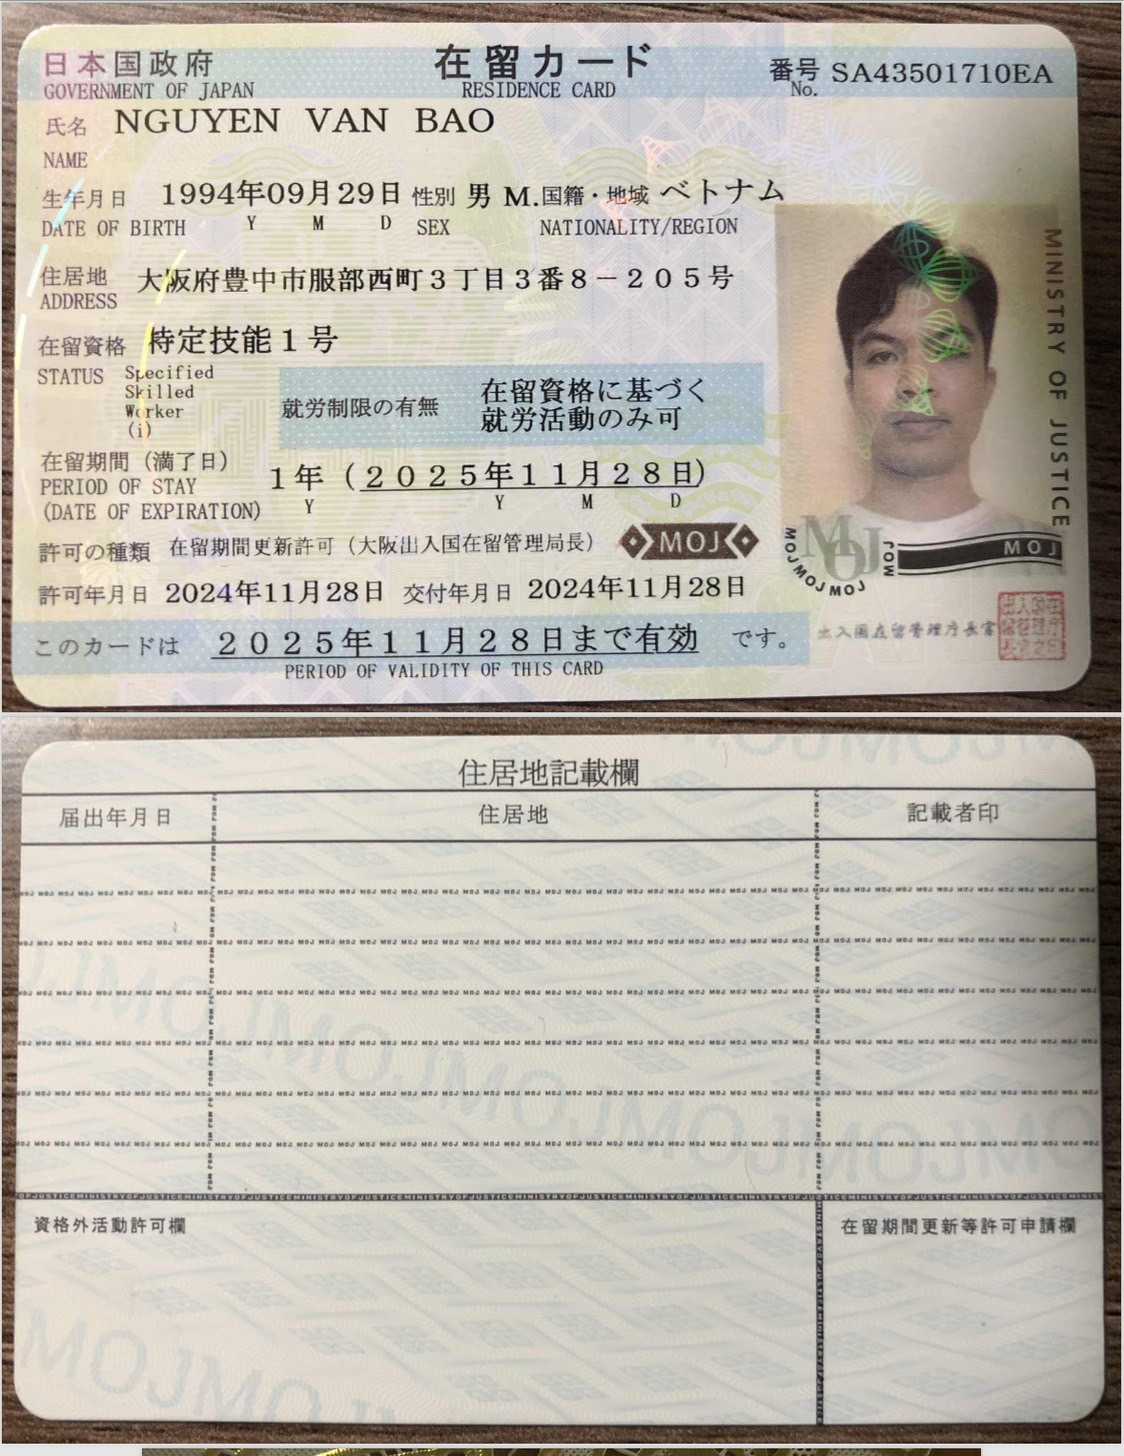 日本国政府
GOVERNMENT OF JAPAN
在留カード
RESIDENCE CARD
番号 SA43501710EA
No.
氏名 NGUYEN VAN BAO
NAME
生年月日 1994年09月29日 性別 男 M. 国籍・地域 ベトナム
DATE OF BIRTH Y M D SEX NATIONALITY/REGION
住居地 大阪府豊中市服部西町3丁目3番8－205号
ADDRESS
在留資格 特定技能1号
STATUS Specified
Skilled
Worker
(i)
就労制限の有無 在留資格に基づく
就労活動のみ可
在留期間(満了日) 1年(2025年11月28日)
PERIOD OF STAY Y Y M D
(DATE OF EXPIRATION)
許可の種類 在留期間更新許可(大阪出入国在留管理局長)
MOJ
許可年月日 2024年11月28日 交付年月日 2024年11月28日
このカードは 2025年11月28日まで有効 です。
PERIOD OF VALIDITY OF THIS CARD
MINISTRY OF JUSTICE
MOJ
MOJMOJMOJ
MOJ
MOJ
出入国在留管理庁長官
住居地記載欄
届出年月日 住居地 記載者印
資格外活動許可欄 在留期間更新等許可申請欄